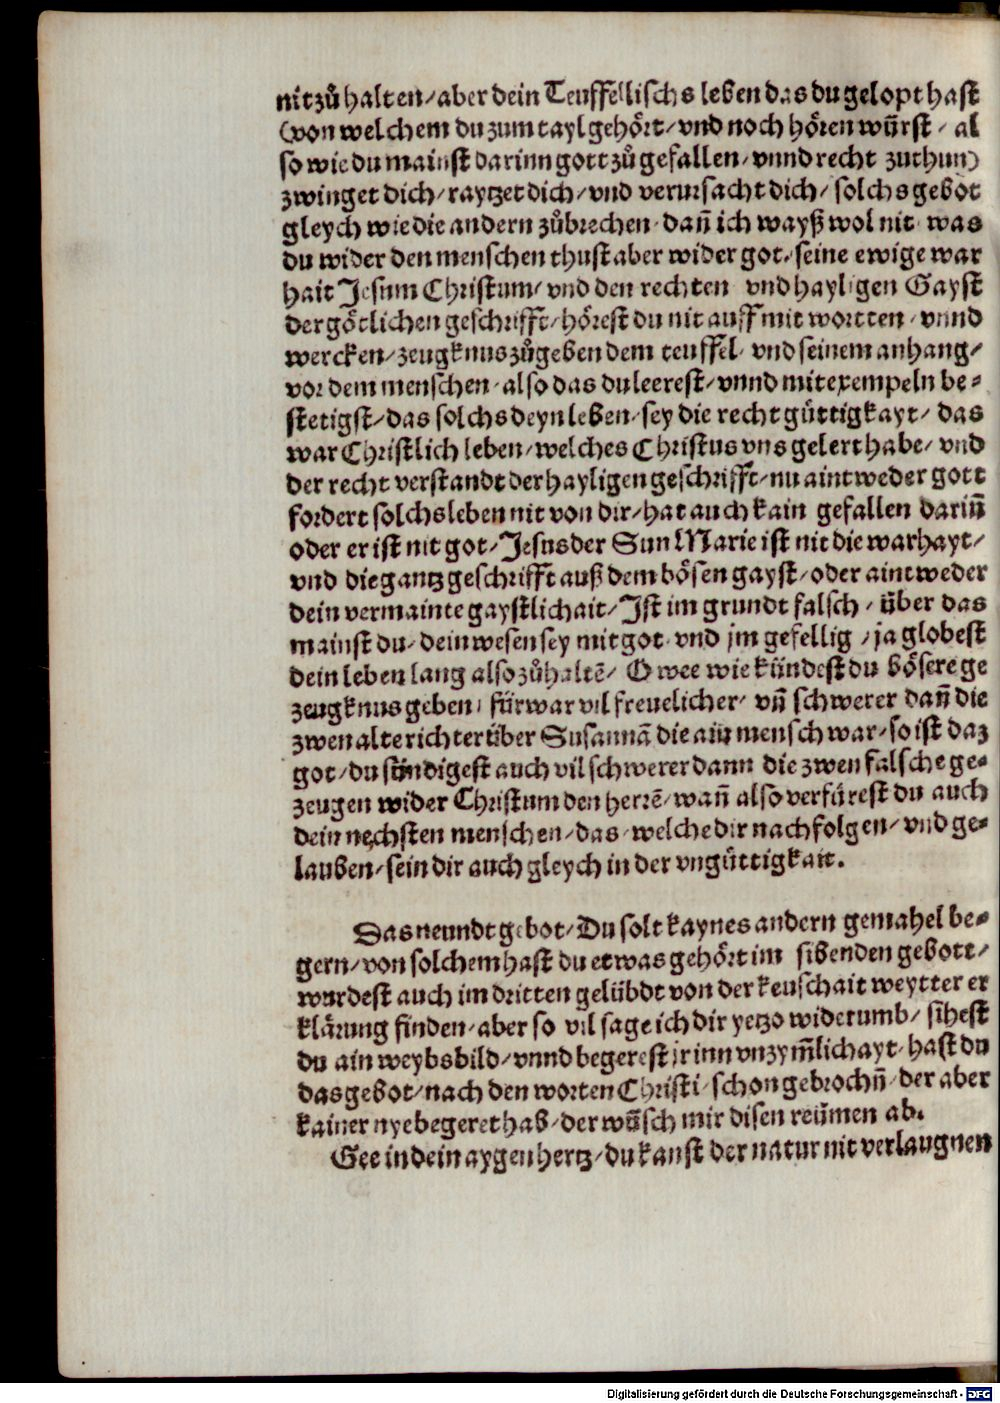 nit zů halten/ aber dein Teuffellischs leben das du gelopt hast
(von welchem du zum tayl gehört/ vnd noch hören würst/ al
so wie du mainst darinn gott zů gefallen/ vnnd recht zuthun)
zwinget dich/ raytzet dich/ vnd verursacht dich/ solchs gebot
gleych wie die andern zůbrechen/ dañ ich wayß wol nit was
du wider den menschen thust aber wider got/ seine ewige war
hait Jesum Christum/ vnd den rechten vnd hayligen Gayst
der götlichen geschrifft/ hörest du nit auff mit wortten/ vnnd
wercken/ zeugknus zůgeben dem teuffel/ vnd seinem anhang/
vor dem menschen/ also das du leerest/ vnnd mit exempeln be⸗
stetigst/ das solchs deyn leben/ sey die recht güttigkayt/ das
war Christlich leben/ welches Christus vns gelert habe/ vnd
der recht verstandt der hayligen geschrifft/ nu aintweder gott
fordert solchs leben nit von dir/ hat auch kain gefallen dariñ
oder er ist nit got/ Jesus der Sun Marie ist nit die warhayt/
vnd die gantz geschrifft auß dem bösen gayst/ oder aintweder
dein vermainte gaystlichait/ Ist im grundt falsch/ über das
mainst du/ dein wesen sey mit got/ vnd jm gefellig/ ja globest
dein leben lang also zůhaltē/ O wee wie kündest du bösere ge
zeugknus geben/ fürwar vil freuelicher/ vñ schwerer dañ die
zwen alte richter über Susannā die ain mensch war/ so ist daz
got/ du sündigest auch vil schwerer dann die zwen falsche ge⸗
zeugen wider Christum den herrē/ wañ also verfürest du auch
dein nechsten menschen/ das/ welche dir nachfolgen/ vnd ge⸗
lauben/ sein dir auch gleych in der vngüttigkait.
Das neundt gebot/ Du solt kaynes andern gemahel be⸗
gern/ von solchem hast du etwas gehört im sibenden gebott/
wurdest auch im dritten gelübdt von der keuschait weytter er
klärung finden/ aber so vil sage ich dir yetzo widerumb/ sihest
du ain weybsbild/ vnnd begerest jr inn vnzym̄lichayt/ hast du
das gebot/ nach den worten Christi/ schon gebrochñ/ der aber
kainer nye begeret hab/ der wūsch mir disen reümen ab.
Gee in dein aygen hertz/ du kanst der natur nit verlaugnen
Digitalisierung gefördert durch die Deutsche Forschungsgemeinschaft - DFG